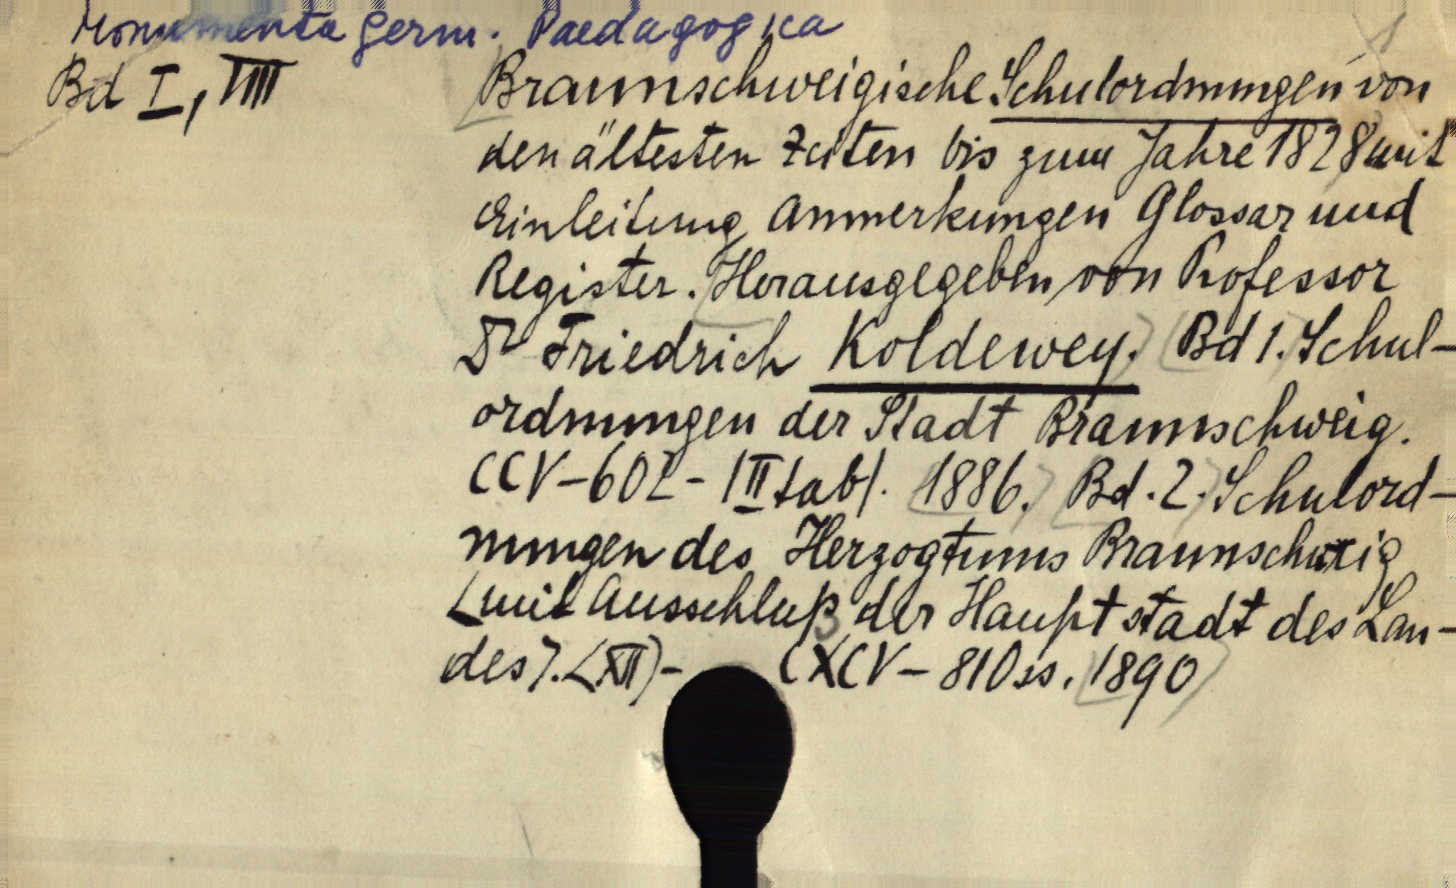 Monumenta Germ. Paedagogica
Bd I, VIII
Braunschweigische Schulordnungen von
den ältesten Zeiten bis zum Jahre 1828 mit
Einleitung Anmerkungen Glossar und
Register. Herausgegeben von Professor
Dr Friedrich Koldewey. Bd 1. Schul-
ordnungen der Stadt Braunschweig.
CCV-602- III tabl. 1886. Bd. 2. Schulord-
nungen des Herzogtums Braunschweig
(mit Ausschluß der Hauptstadt des Lan-
des). (XII)- CXCV-810 ss. 1890